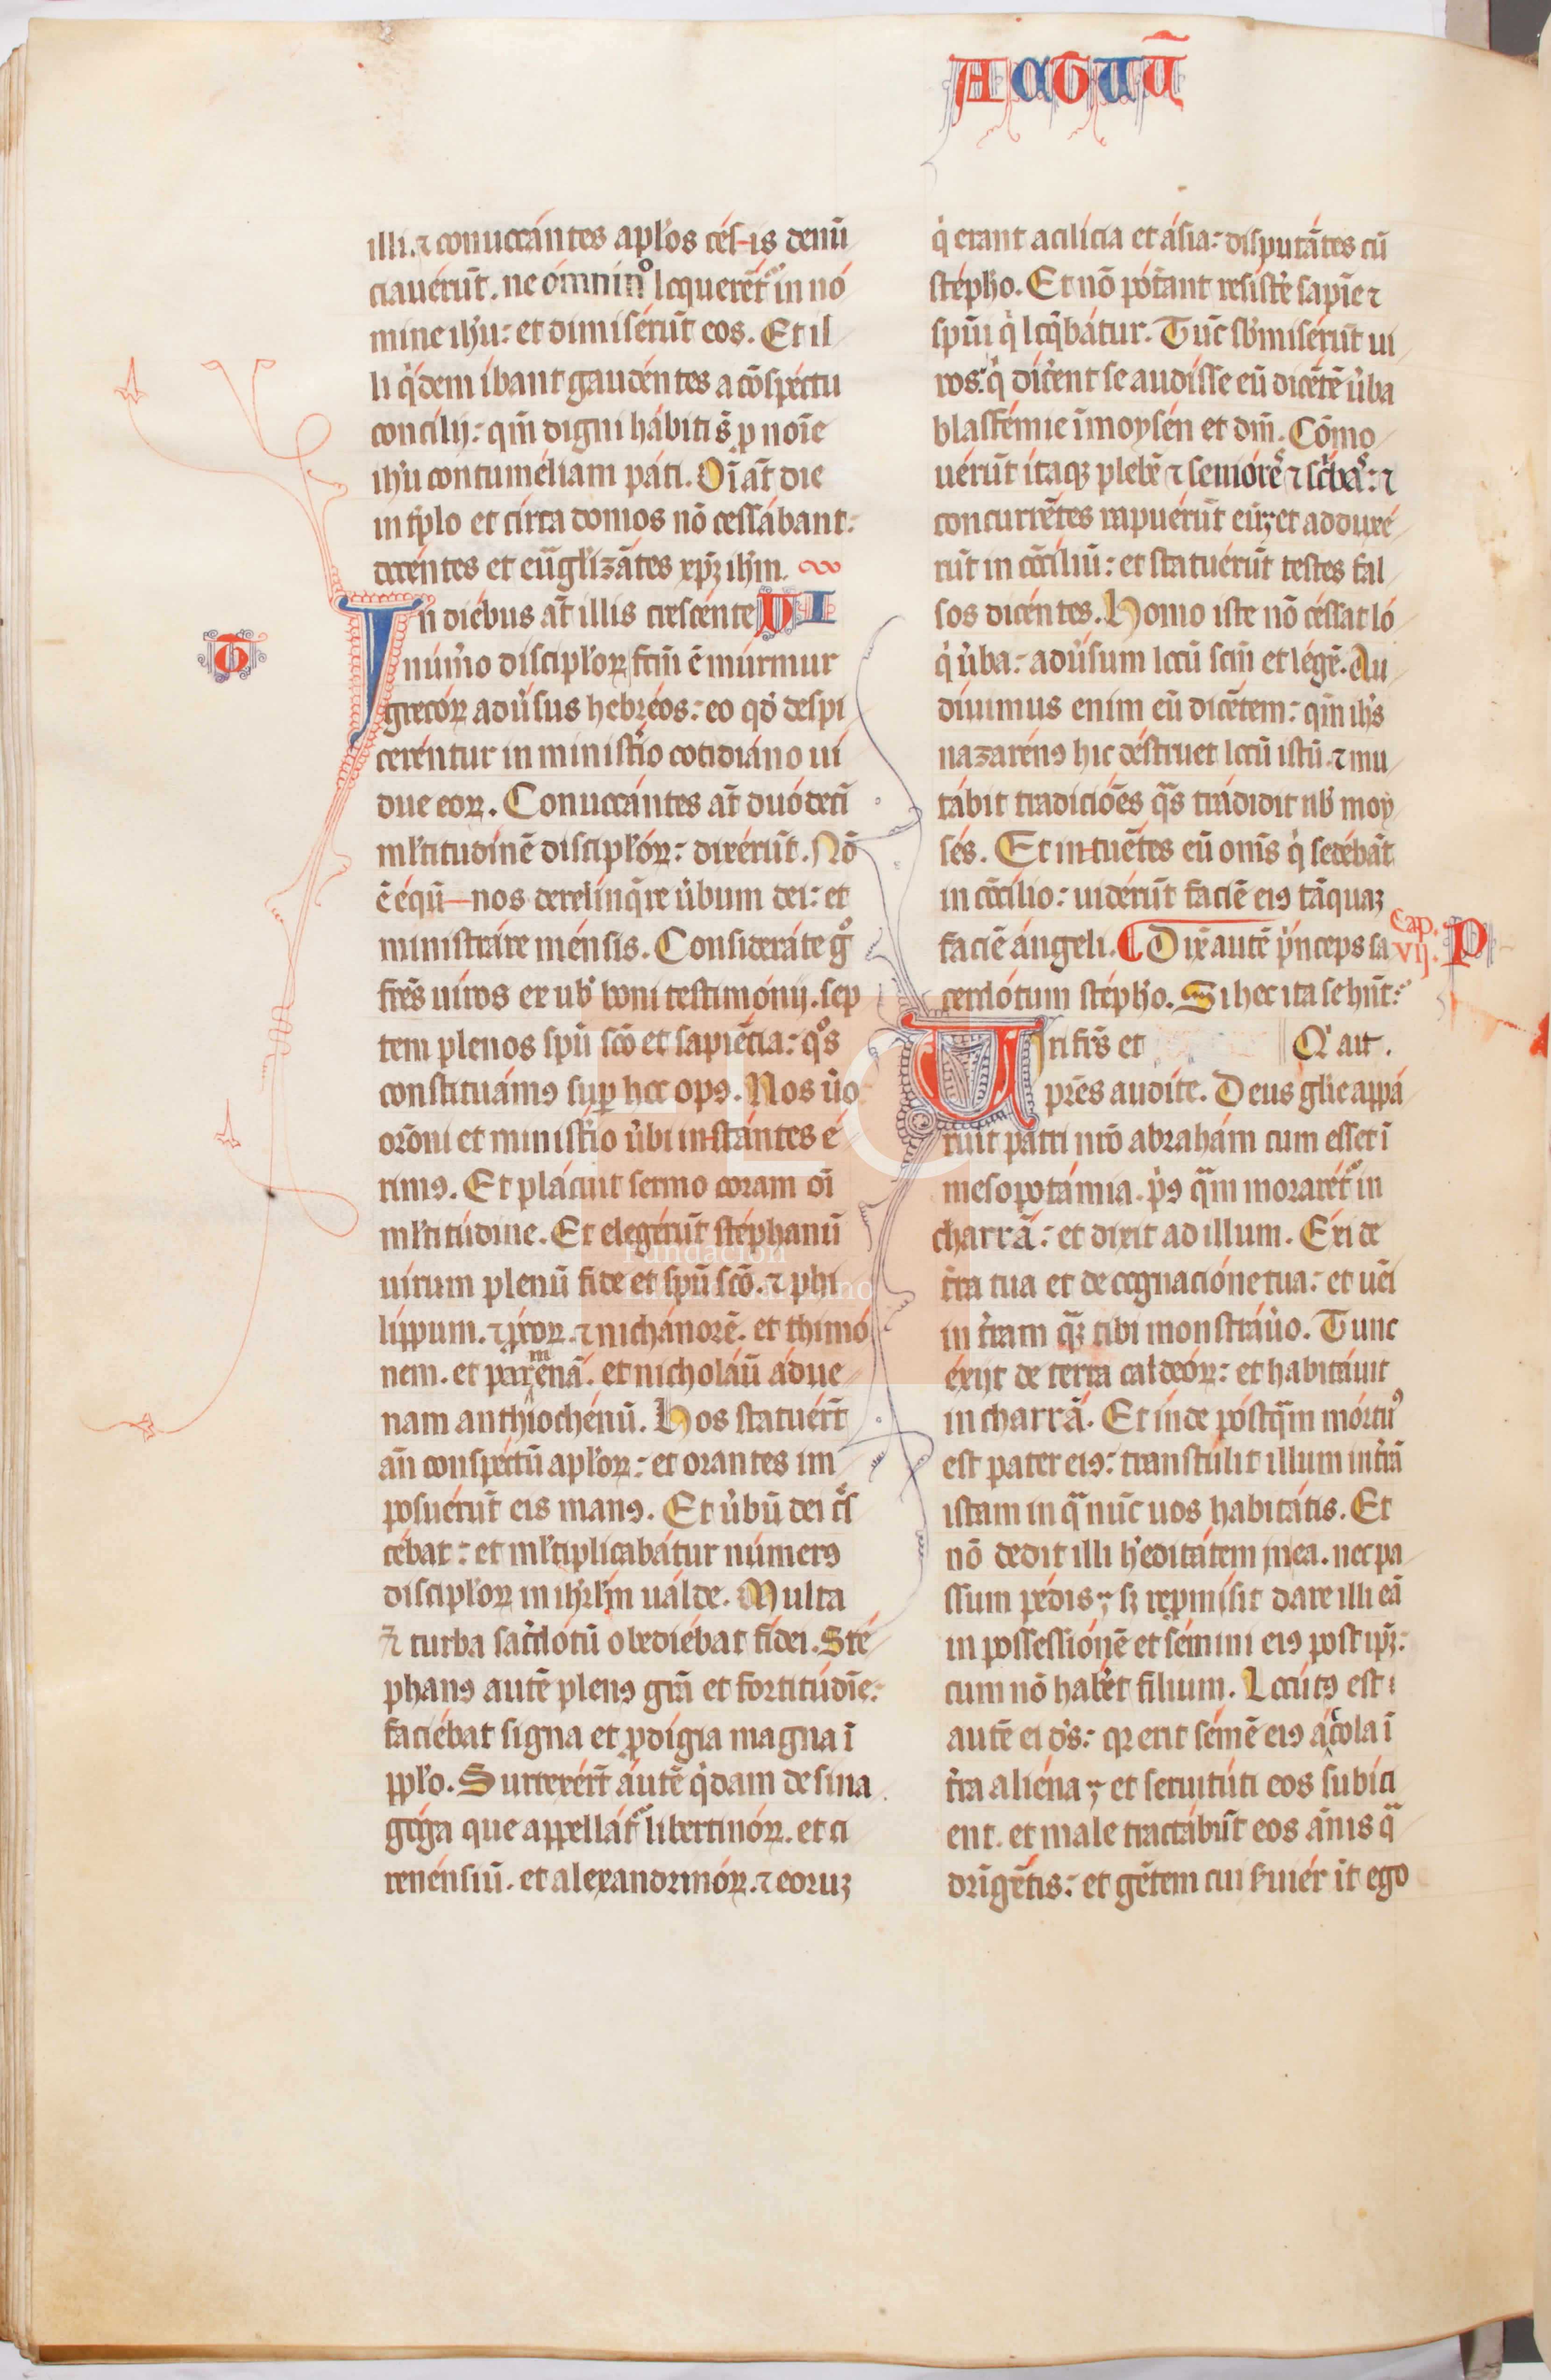 ACTUŪ
illi. ⁊ conuocántes apl'os cés-is denū
ciauérūt. ne ómninº loquerēt᷒ in nó
mine ih'u: et dimisérūt eos. Et il
li q̍dem íbant gaudéntes a cōspéctu
concílij: qm̄ digni hábiti s̄t p noīe
ih'u contuméliam páti. Oī aūt die
in tp̄lo et círca domos nō cessábant:
docéntes et euāgl'izātes xp̄ʒ ih'm.
In diébus aūt illis crescénte VI
núm̍o discipl'oꝝ fcm̄ ē múrmur
grecóꝝ adu̍sus hebréos: eo qd̍ despi
ceréntur in minist̍io cotidiáno uí
due eoꝝ. Conuocántes aūt duódeci
ml'titudínē discipl'óꝝ: dixérūt. Nō
ē équū nos derelínq̄re u̍bum dei: et
ministráre ménsis. Consideráte gº
fr̄es uíros ex uob̍ boni testimónij. sep
tem plenos spū scō et sapiēcia: qºs
constituámꝯ sup̱ hoc opꝯ. Nos u̍o
or̄oni et minist̍io u̍bi instántes é
rimꝯ. Et plácuit sermo coram oī
ml'titúdine. Et elegérūt stéphanū
uirum plenū fide et spū scō. ⁊ phi
líppum. ⁊ p̱coꝝ. ⁊ nichánorē. et thimó
nem. et parmenā. et nicholáū áduę
nam anthiochénū. Hos statuér̄t
an̄ conspéctū apl'oꝝ: et orantes im
posuérūt eis manꝯ. Et u̍bū dei c̍s
cébat: et ml'tiplicabátur númerꝯ
discipl'oꝝ in ih'rl'm ualde. Multa
⁊̄ turba sac̍dótū obediébat fídei. Sté
phanꝯ autē plenꝯ gr̄a et fortitúdīe:
faciébat signa et p̱dígia magna ī
pp̱l'o. Surrexér̄t áutē q̍dam de sina
góga que appellát᷒ libertinóꝝ. et ci
renénsiū. et alexandrinóꝝ. ⁊ eoruʒ
q̍ erant a cilícia et ásia: disputātes cū
stépho. Et nō pót̍ant resíst̍e sapīe ⁊
spūi q̍ loq̄bátur. Tūc sb̍misérūt ui
ros: q̍ dícerent se audísse eū dicētē u̍ba
blasfémie ī moysén et dm̄. Cōmo
uérūt ítaqꝫ plebē ⁊ senióreˢ ⁊ sc̍baˢ: ⁊
concurrētes rapuérūt eū; et adduxé
rūt in cōcíliū: et statuérūt testes fal
sos dicéntes. Homo iste nō céssat ló
q̍ u̍ba: adu̍sum locū scm̄ et légē. Au
díuimus enim eū dicētem: qm̄ ih's
nazarénꝯ hic déstruet locū istū. ⁊ mu
tábit tradiciōes qᷓs trádidit uob̍ moy
sés. Et intuētes eū om̄s q̍ sedébāt
in cōcílio: uidérūt faciē eiꝯ tāquaʒ
faciē ángeli. Dix̄ autē p̍nceps sa
Cap. VIJ.
P
cerdótum stépho. Si hec ita se hn̄t:
Uiri fr̄s et Q' ait.
pr̄es audíte. Deus gl'ie appá
ruit patri nr̄o abrahám cum esset ī
mesopotámia. p̍ꝯ qᷓm morarét᷒ in
charrā: et dixit ad illum. Exi de
t̍ra tua et de cognacióne tua: et uēi
in t̍ram qᷓʒ tibi monstráu̍o. Tunc
éxijt de terra caldeóꝝ: et habitáuit
in charrā. Et índe póstqᷓm mórtuꝰ
est pater eiꝯ: transtúlit illum in t̍rā
istam in qᷓ nūc uos habitátis. Et
nō dedit illi h'editátem in ea. nec pa
ssum pédis; sʒ rep̱mísit dare illi eā
in possessiónē et sémini eiꝯ post ip̄ʒ:
cum nō habe̍t filium. Locútꝯ est
autē ei ds̄: qꝛ erit sémē eiꝯ áccola ī
t̍ra aliéna; et seruitúti eos subíci
ent. et male tractábūt eos ānis qᷓ
dringētis: et gētem cui s̍uiér it ego